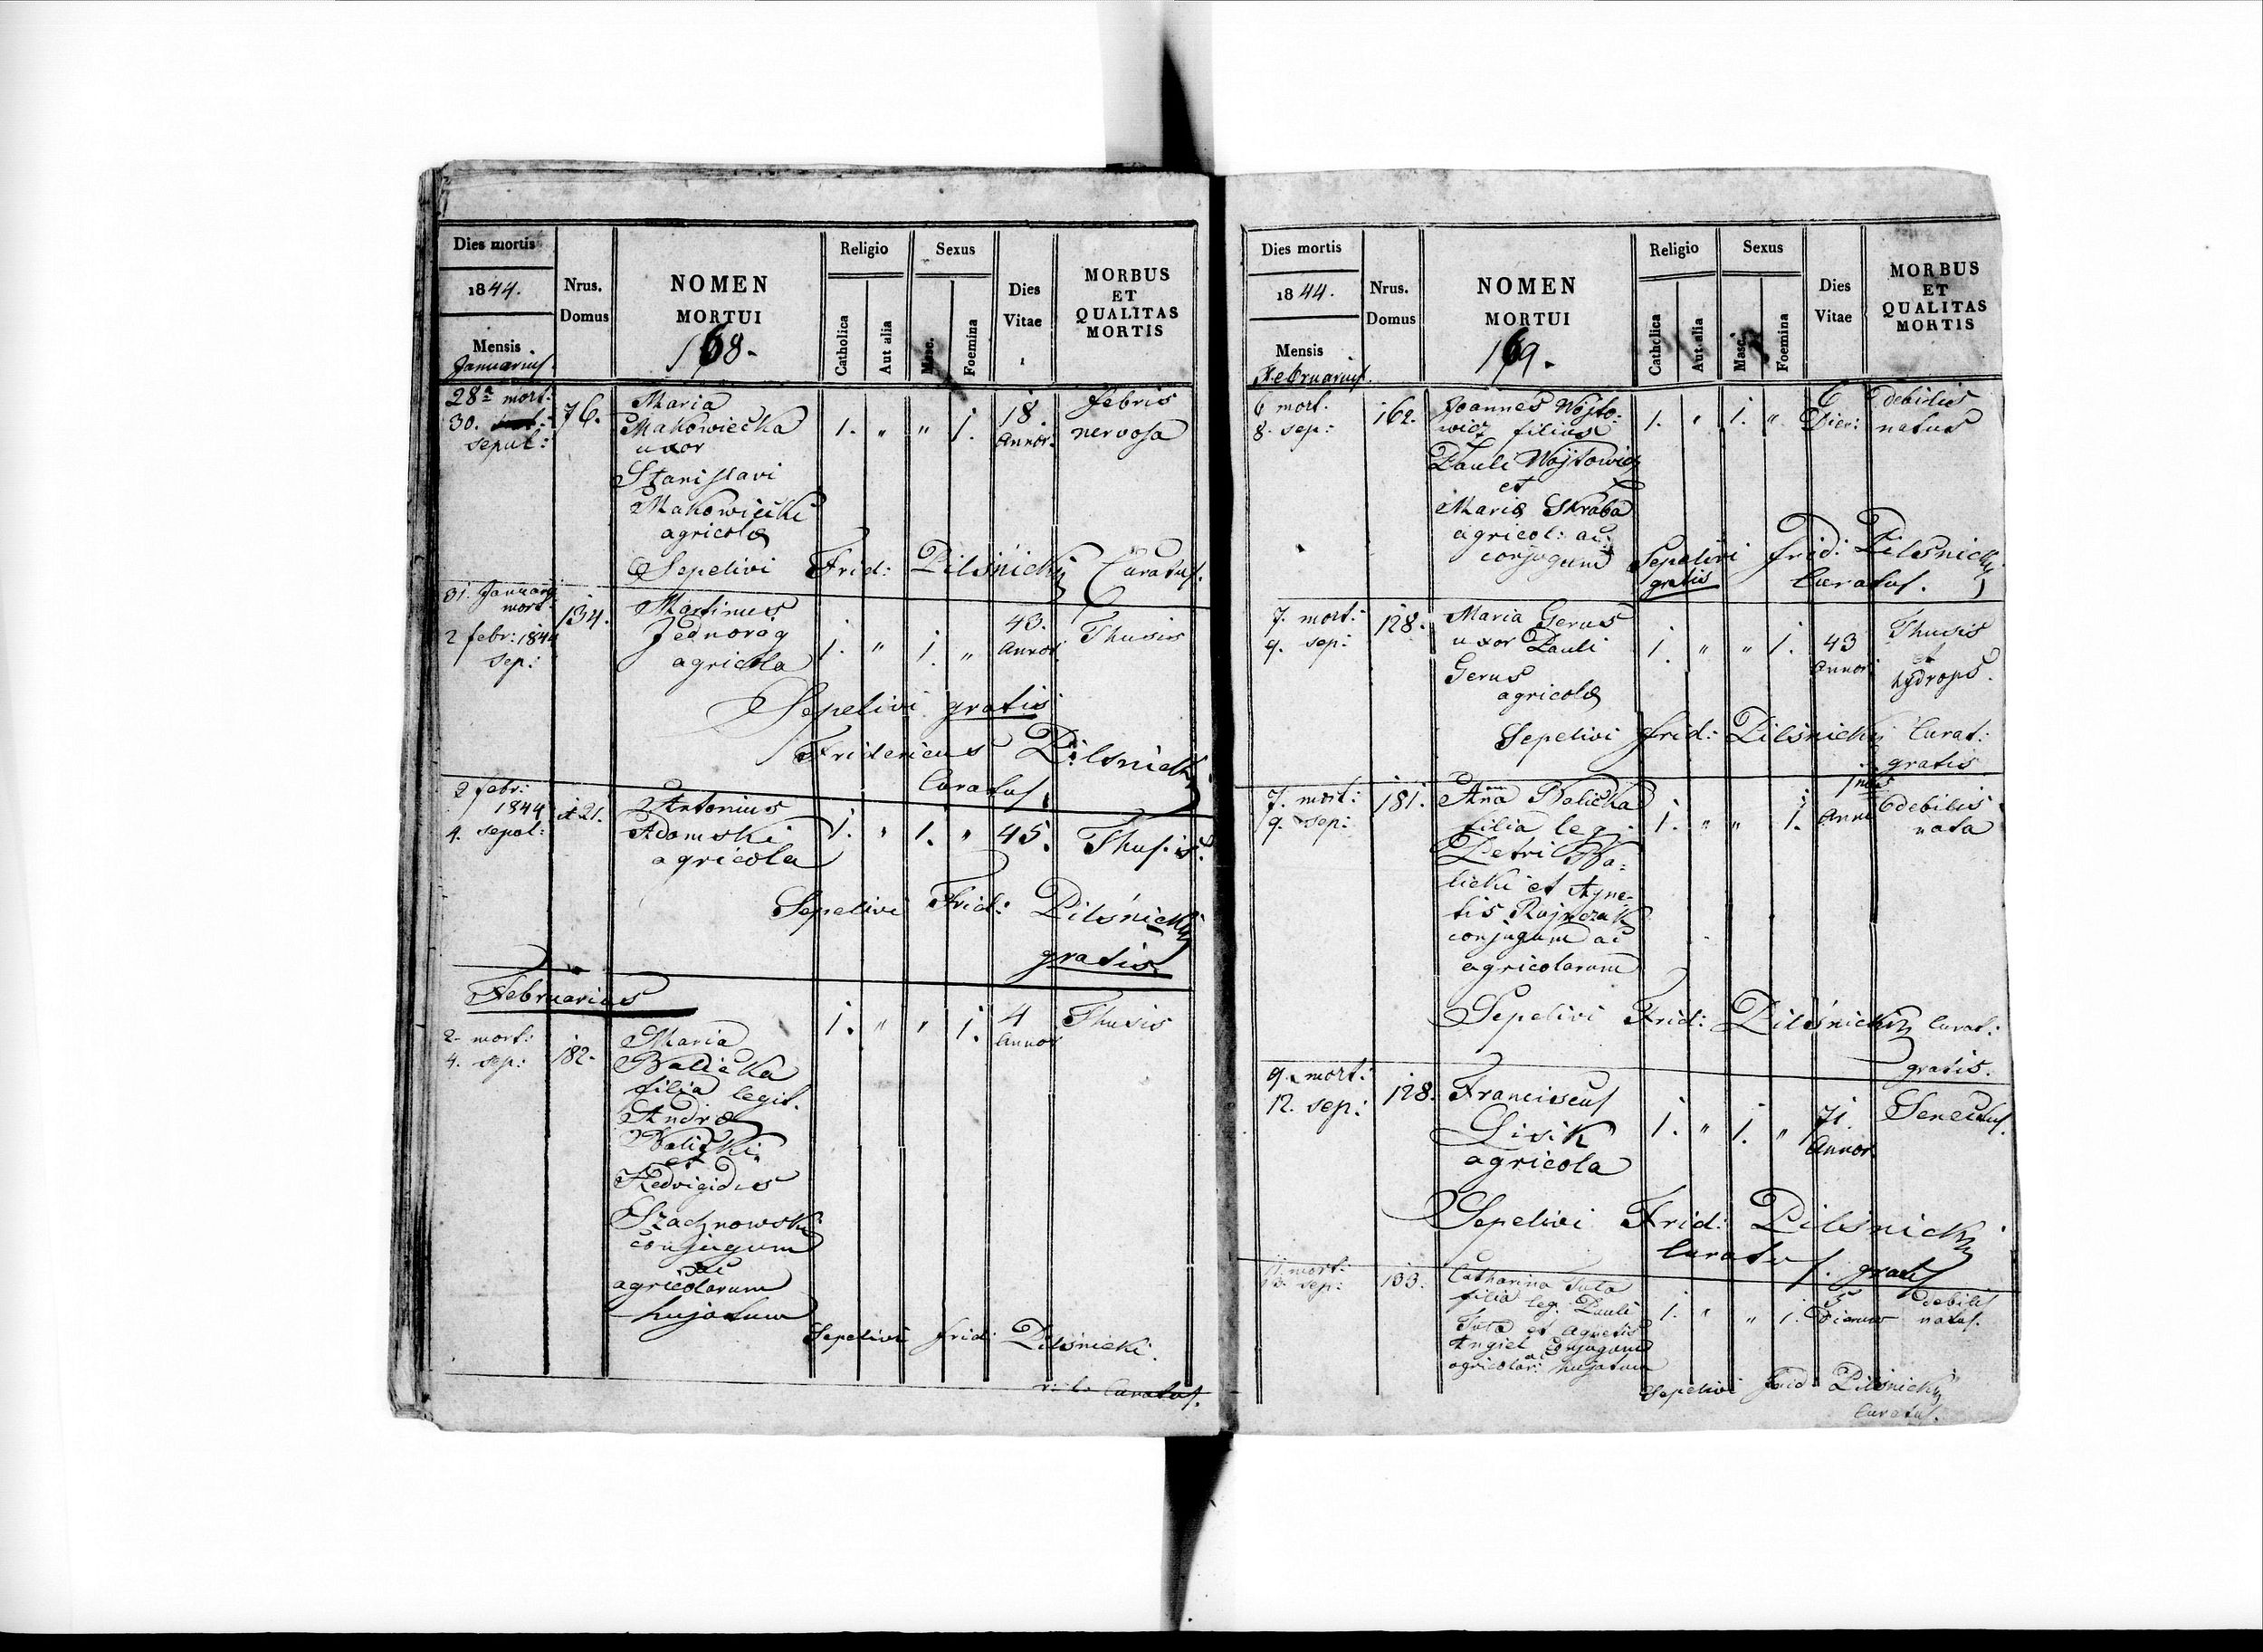 Dies mortis
1844.
Mensis
Januarius.
Nrus.
Domus
NOMEN
MORTUI
168.
Religio
Catholica
Aut alia
Sexus
Masc.
Foemina
Dies
Vitae
MORBUS
ET
QUALITAS
MORTIS
28a mort:
30.
sepul:
76.
Maria
Makowiecka
uxor
Stanislavi
Makowiecki
agricolæ
1. " " 1.
18.
Annor:
febris
nervosa
Sepelivi Frid: Pilsnicki Curatus.
31. Januarij
mort:
2 febr: 1844
sep:
134.
Martinus
Jednorog
agricola
1. " 1. "
43.
Annor.
Thusis
Sepelivi gratis
Fridericus Pilsnicki
Curatus.
2 febr:
1844
4. sepol:
121.
Antonius
Adamski
agricola
1. " 1. " 45.
Thusis.
Sepelivi Frid: Pilśnicki
gratis.
Februarius
2. mort:
4. sep:
182.
Maria
Balicka
filia legit.
Andræ
Balicki
et
Hedvigidis
Szachnowski
conjugum
ac
agricolarum
hujatum
1. " " 1.
4
Annor
Thusis
Sepelivi frid: Pilśnicki.
Curatus.
Dies mortis
1844.
Mensis
Februarius.
Nrus.
Domus
NOMEN
MORTUI
169.
Religio
Catholica
Aut alia
Sexus
Masc.
Foemina
Dies
Vitae
MORBUS
ET
QUALITAS
MORTIS
6 mort.
8. sep:
162.
Joannes Wojto:
wicz filius
Pauli Wojtowicz
et
Mariæ Skraba
agricol: ac
conjugum
1. " 1. "
6
Dier:
debilis
natus
Sepelivi frid: Pilsnicki
gratis Curatus.
7. mort:
9. sep:
128.
Maria Gerus
uxor Pauli
Gerus
agricolæ
1. " " 1.
43
Annor
Thusis
et
hydrops.
Sepelivi frid: Pilśnicki Curat:
gratis
7. mort:
9. sep:
181.
Anna Balicka
filia leg.
Petri Ba:
licki et Agne-
tis Rajnczak
conjugum ac
agricolarum
1. " " 1.
debilis
nata
Sepelivi Frid: Pilśnicki Curat:
gratis.
9. mort:
12. sep:
128.
Franciscus
Lisik
agricola
1. " 1. "
71.
Annor.
Senectus.
Sepelivi Frid: Pilśnicki
Curatus. gratis
11. mort:
13. sep:
133.
Catharina Tuta
filia leg. Pauli
Tuta et Agnetis
Angiel conjugum
ac
agricolar: hujatum
1. " " 1.
5
Dierum
debilis
natus.
Sepelivi Frid: Pilśnicki
Curatus.